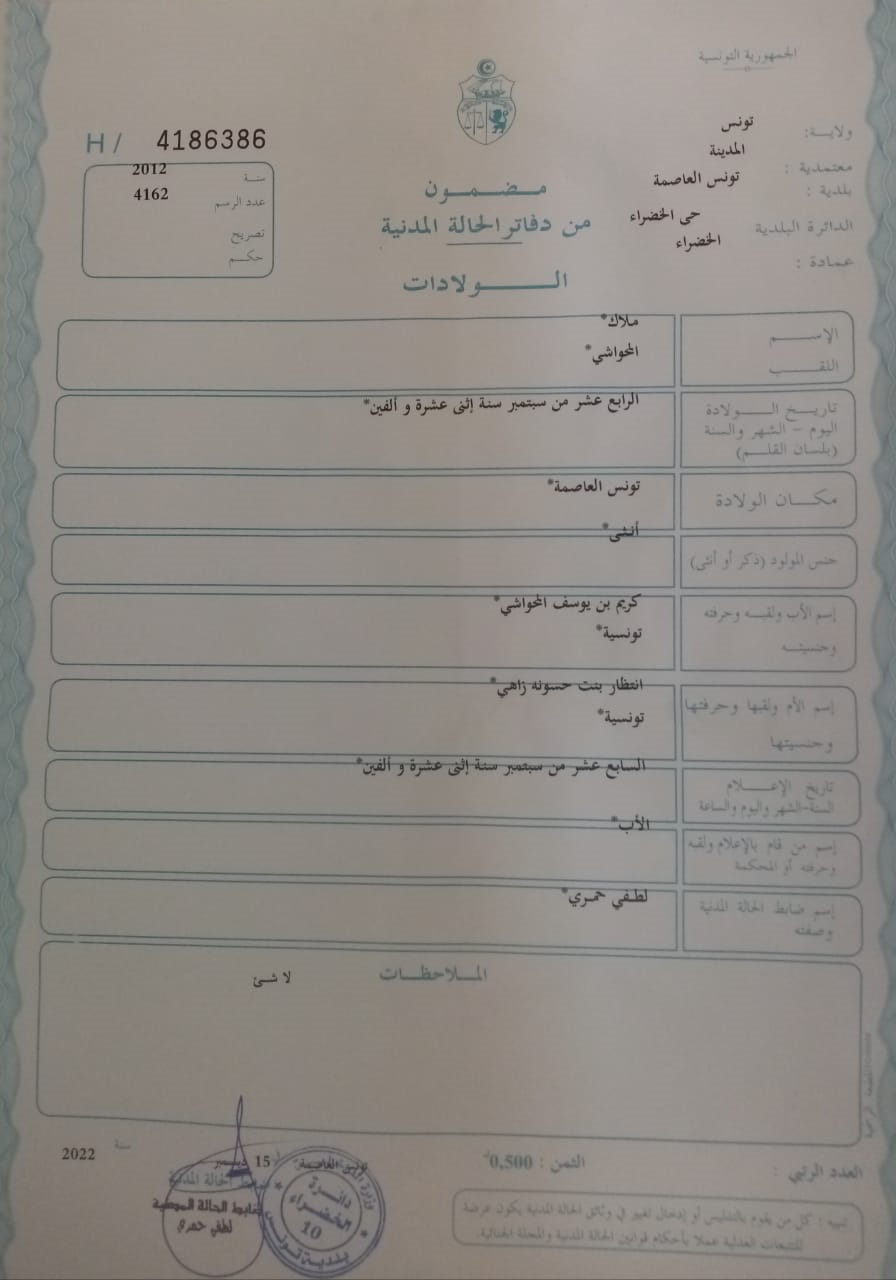 الجمهورية التونسية
ولاية: تونس
معتمدية : المدينة
بلدية : تونس العاصمة
الدائرة البلدية حى الخضراء
عمادة : الخضراء
H / 4186386
سنة 2012
عدد الرسم 4162
تصريح
حكم
مضمون
من دفاتر الحالة المدنية
الولادات
الإسم ملاك*
اللقب المحواشي*
تاريخ الولادة الرابع عشر من سبتمبر سنة إثنى عشرة و ألفين*
اليوم - الشهر والسنة
(بلسان القلم)
مكان الولادة تونس العاصمة*
جنس المولود (ذكر أو أنثى) أنثى*
إسم الأب ولقبه وحرفته كريم بن يوسف المحواشي*
وجنسيته تونسية*
إسم الأم ولقبها وحرفتها انتظار بنت حسونه زاهي*
وجنسيتها تونسية*
تاريخ الإعلام السابع عشر من سبتمبر سنة إثنى عشرة و ألفين*
السنة-الشهر واليوم والساعة
إسم من قام بالإعلام ولقبه الأب*
وحرفته أو المحكمة
إسم ضابط الحالة المدنية لطفي حمري*
وصفته
الملاحظات
لا شئ
العدد الرتبي :
الثمن : 0,500د
تونس العاصمة في 15 ديسمبر سنة 2022
ضابط الحالة المدنية
ضابط الحالة المدنية
لطفي حمري
دائرة
الخضراء
10
بلدية تونس
تنبيه : كل من يقوم بالتدليس أو إدخال تغيير في وثائق الحالة المدنية يكون عرضة
للتتبعات العدلية عملا بأحكام قوانين الحالة المدنية والمجلة الجنائية.